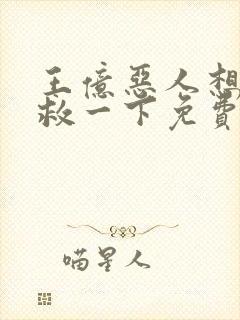 王億惡人想
救一下免費
喵星人